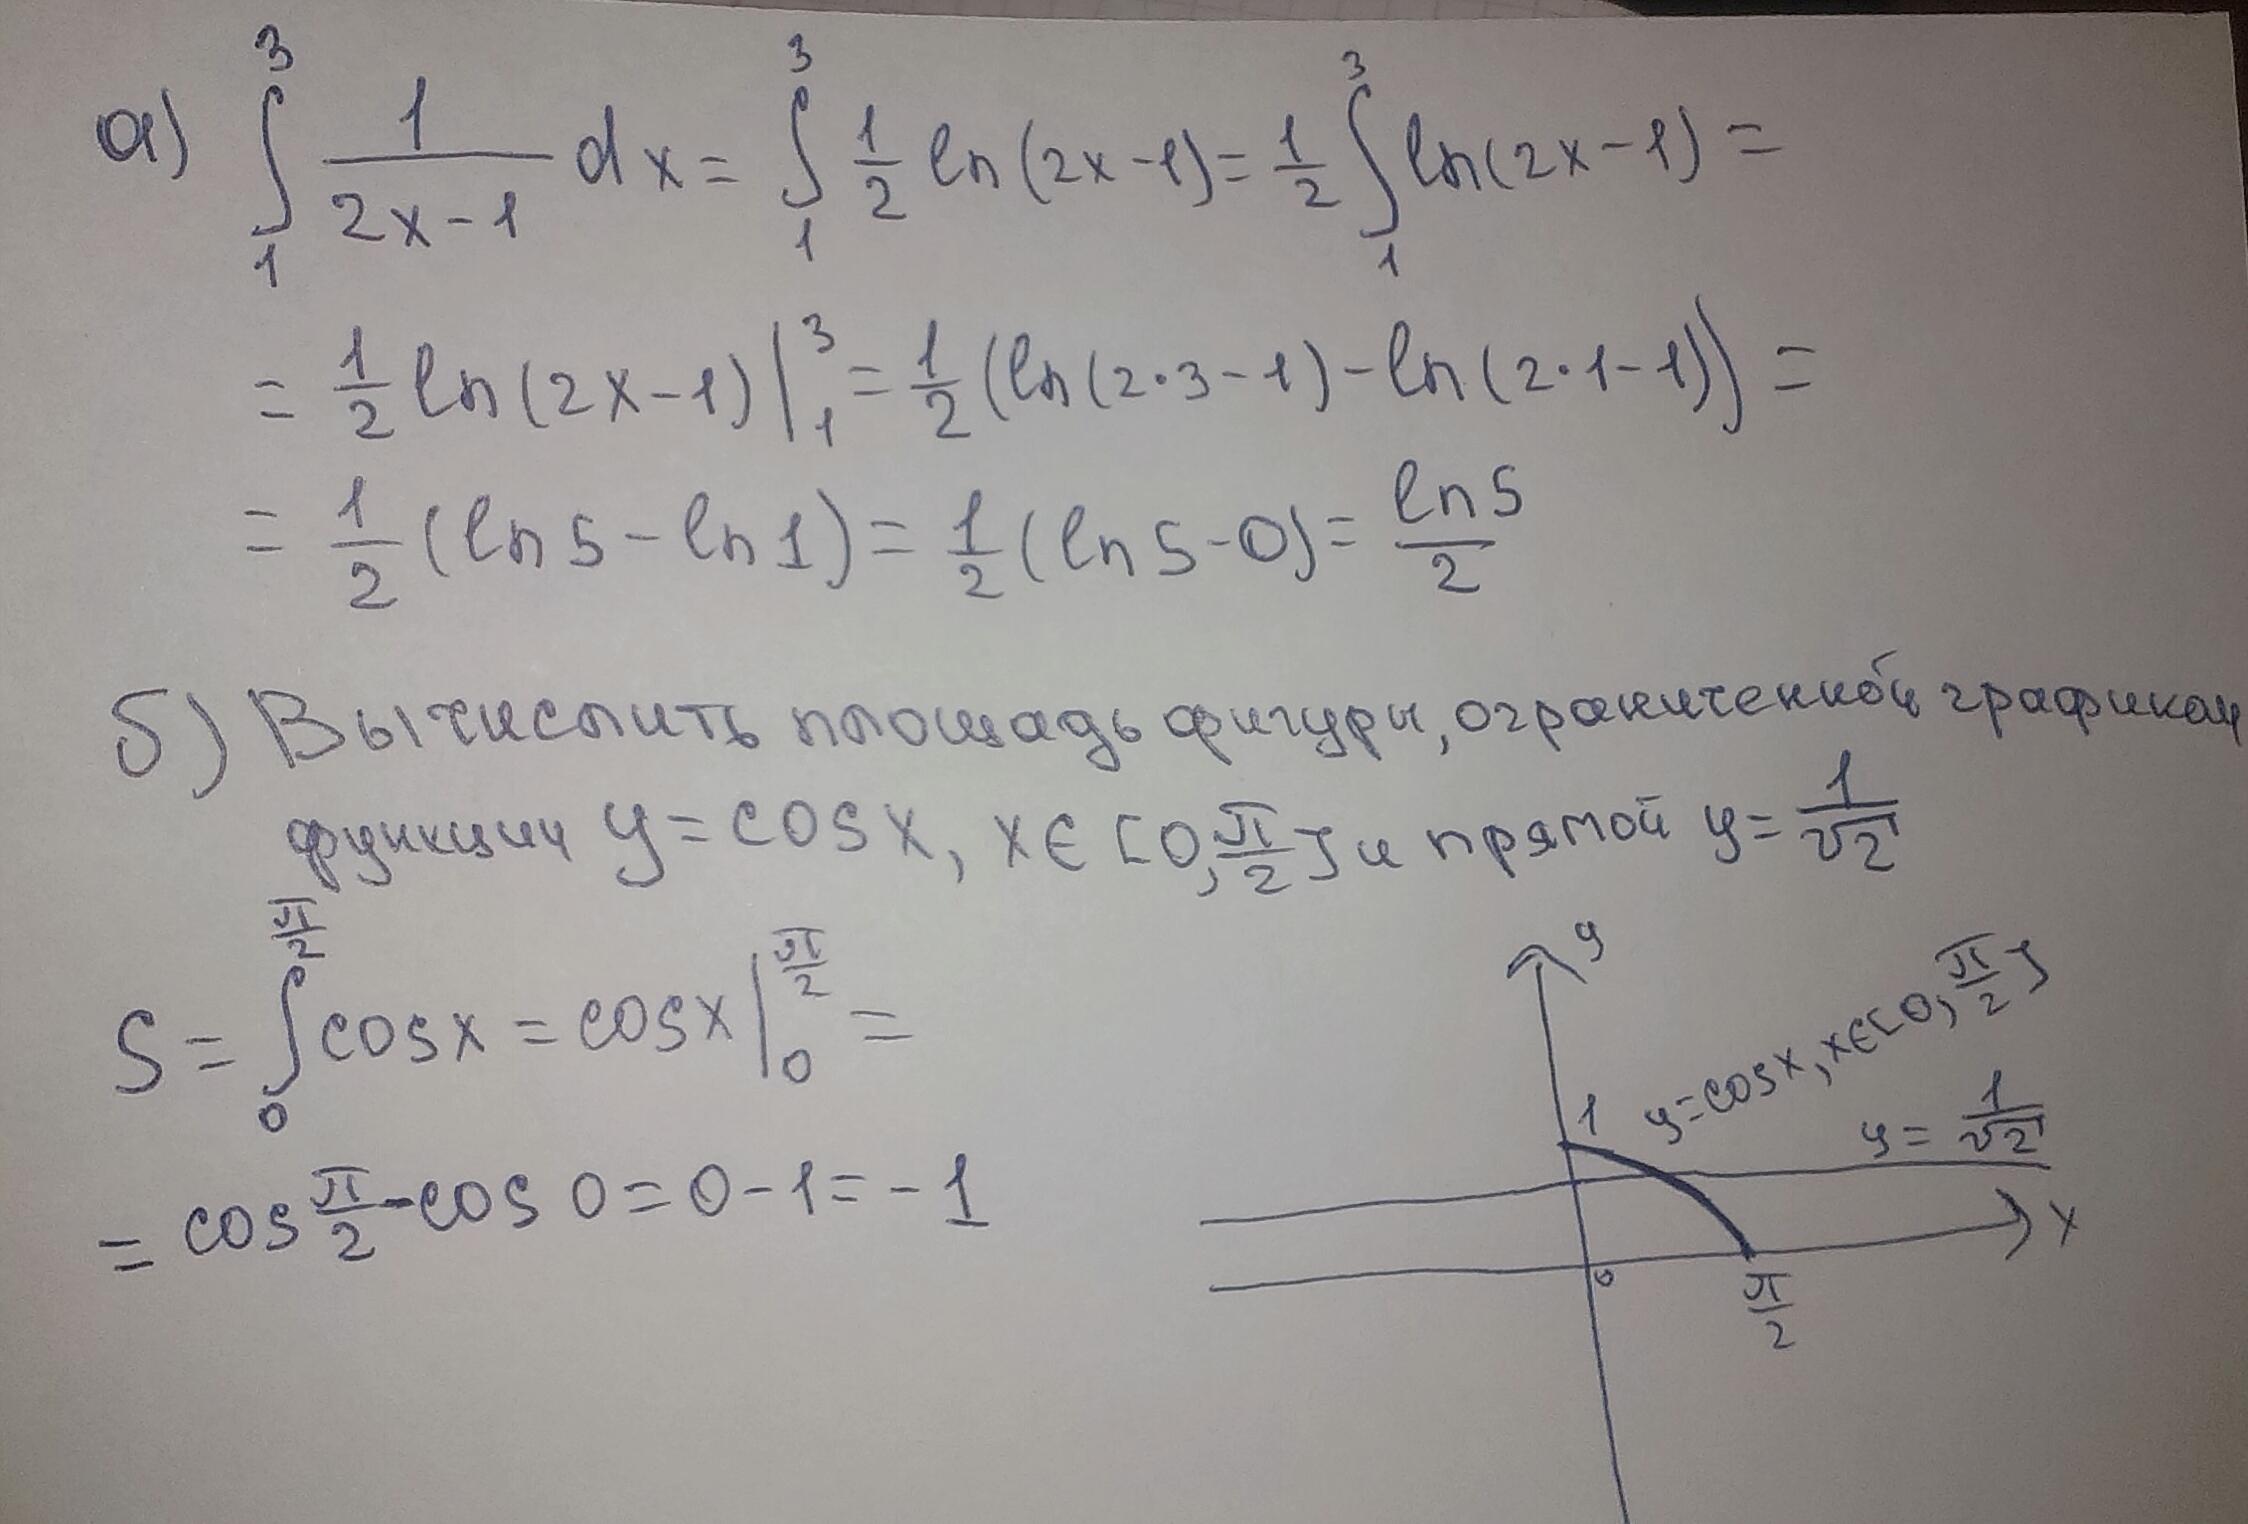 а) ∫₁³ 1/(2x-1) dx = ∫₁³ 1/2 ln(2x-1) = 1/2 ∫₁³ ln(2x-1) =
= 1/2 ln(2x-1)|₁³ = 1/2 (ln(2·3-1)-ln(2·1-1)) =
= 1/2 (ln5-ln1) = 1/2 (ln5-0) = ln5/2
б) Вычислить площадь фигуры, ограниченной графиком
функции y=cosx, x∈[0,π/2] и прямой y=1/√2
S = ∫₀^(π/2) cosx = cosx|₀^(π/2) =
= cos π/2 - cos 0 = 0-1 = -1
y
y=cosx, x∈[0,π/2]
1
y=1/√2
x
0
π/2